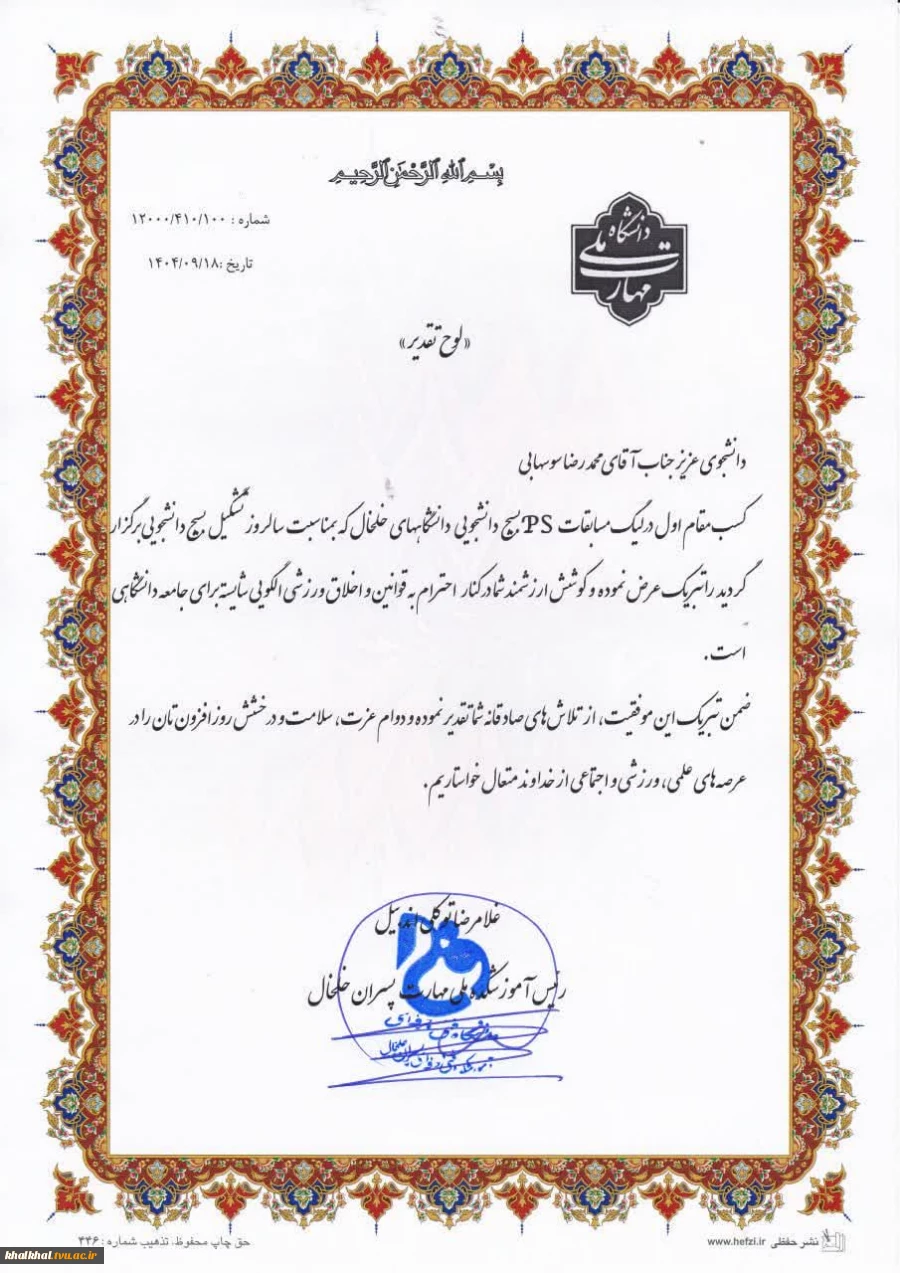 بسم الله الرحمن الرحیم
شماره : ۱۲۰۰۰/۴۱۰/۱۰۰
تاریخ :۱۴۰۴/۰۹/۱۸
دانشگاه
ملی
مهارت
«لوح تقدیر»
دانشجوی عزیز جناب آقای محمد رضا سوسهابی
کسب مقام اول در لیگ مسابقات PS بسیج دانشجویی دانشگاههای خلخال که بمناسبت سالروز تشکیل بسیج دانشجویی برگزار
گردید را تبریک عرض نموده و کوشش ارزشمند شما در کنار احترام به قوانین و اخلاق ورزشی الگویی شایسته برای جامعه دانشگاهی
است.
ضمن تبریک این موفقیت، از تلاش های صادقانه شما تقدیر نموده و دوام عزت، سلامت و درخشش روز افزون تان را در
عرصه های علمی، ورزشی و اجتماعی از خداوند متعال خواستاریم.
غلامرضا توکلی اندبیل
رئیس آموزشکده ملی مهارت پسران خلخال
نشر حفظی www.hefzi.ir
حق چاپ محفوظ، تذهیب شماره : ۴۴۶
khalkhal.tvu.ac.ir